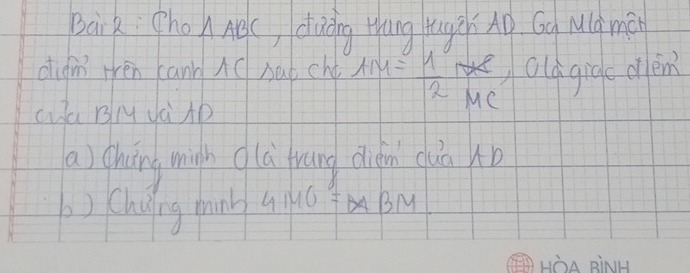 Bài 2: Cho Δ ABC, đường trung tuyến AD. Gọi M là một
điểm trên cạnh AC sao cho AM = 1/2 MC, O là giao điểm
của BM và AD
a) Chứng minh O là trung điểm của AD
b) Chứng minh 4MO = BM
HÒA BÌNH